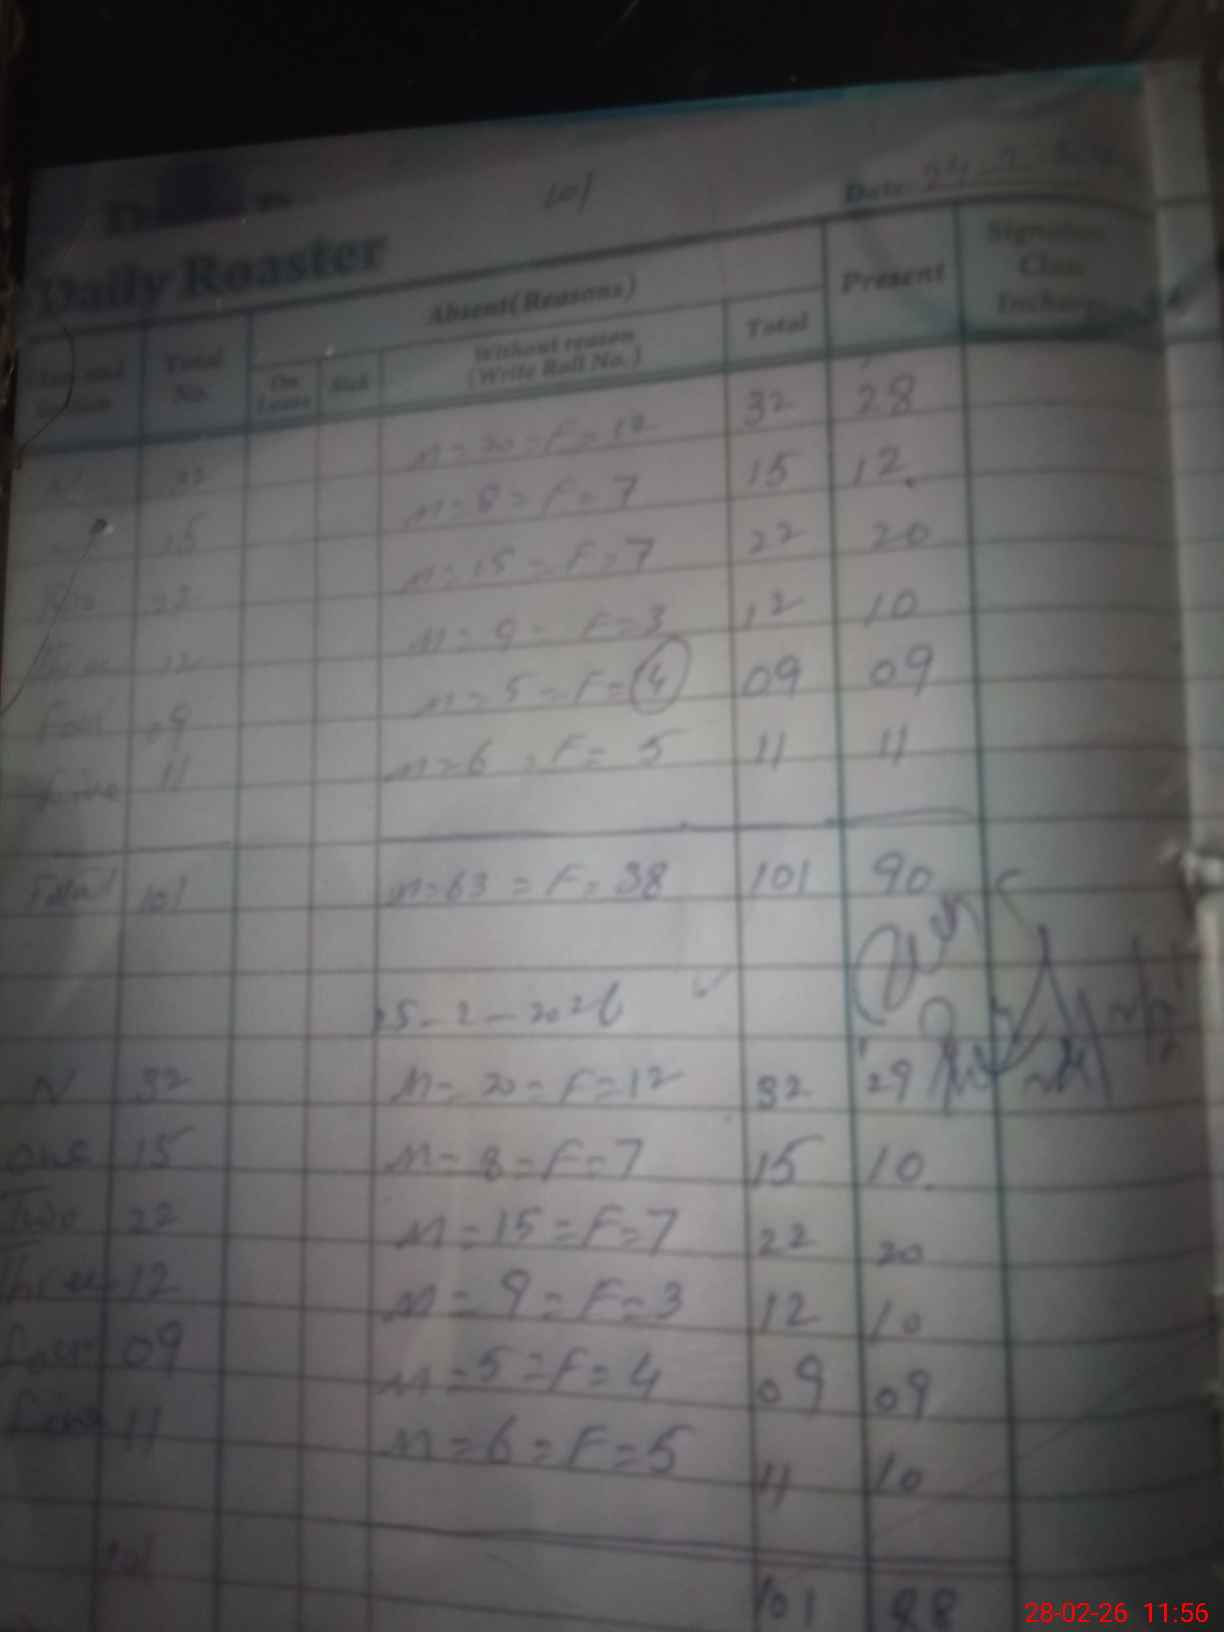 101
Date: 24-2-
Daily Roaster
Total No. On Leave Sick Absent (Reasons) Without reason (Write Roll No.) Total Present Signature Class Incharge
N 32 M=20=F=12 32 28
15 M=8=F=7 15 12
Two 22 M=15=F=7 22 20
Three 12 M=9=F=3 12 10
Four 09 M=5=F=4 09 09
Five 11 M=6=F=5 11 11
Total 101 M=63=F=38 101 90
25-2-2026
N 32 M=20=F=12 32 29
one 15 M=8=F=7 15 10
Two 22 M=15=F=7 22 20
Three 12 M=9=F=3 12 10
Four 09 M=5=F=4 09 09
Five 11 M=6=F=5 11 10
101 101 88
28-02-26 11:56